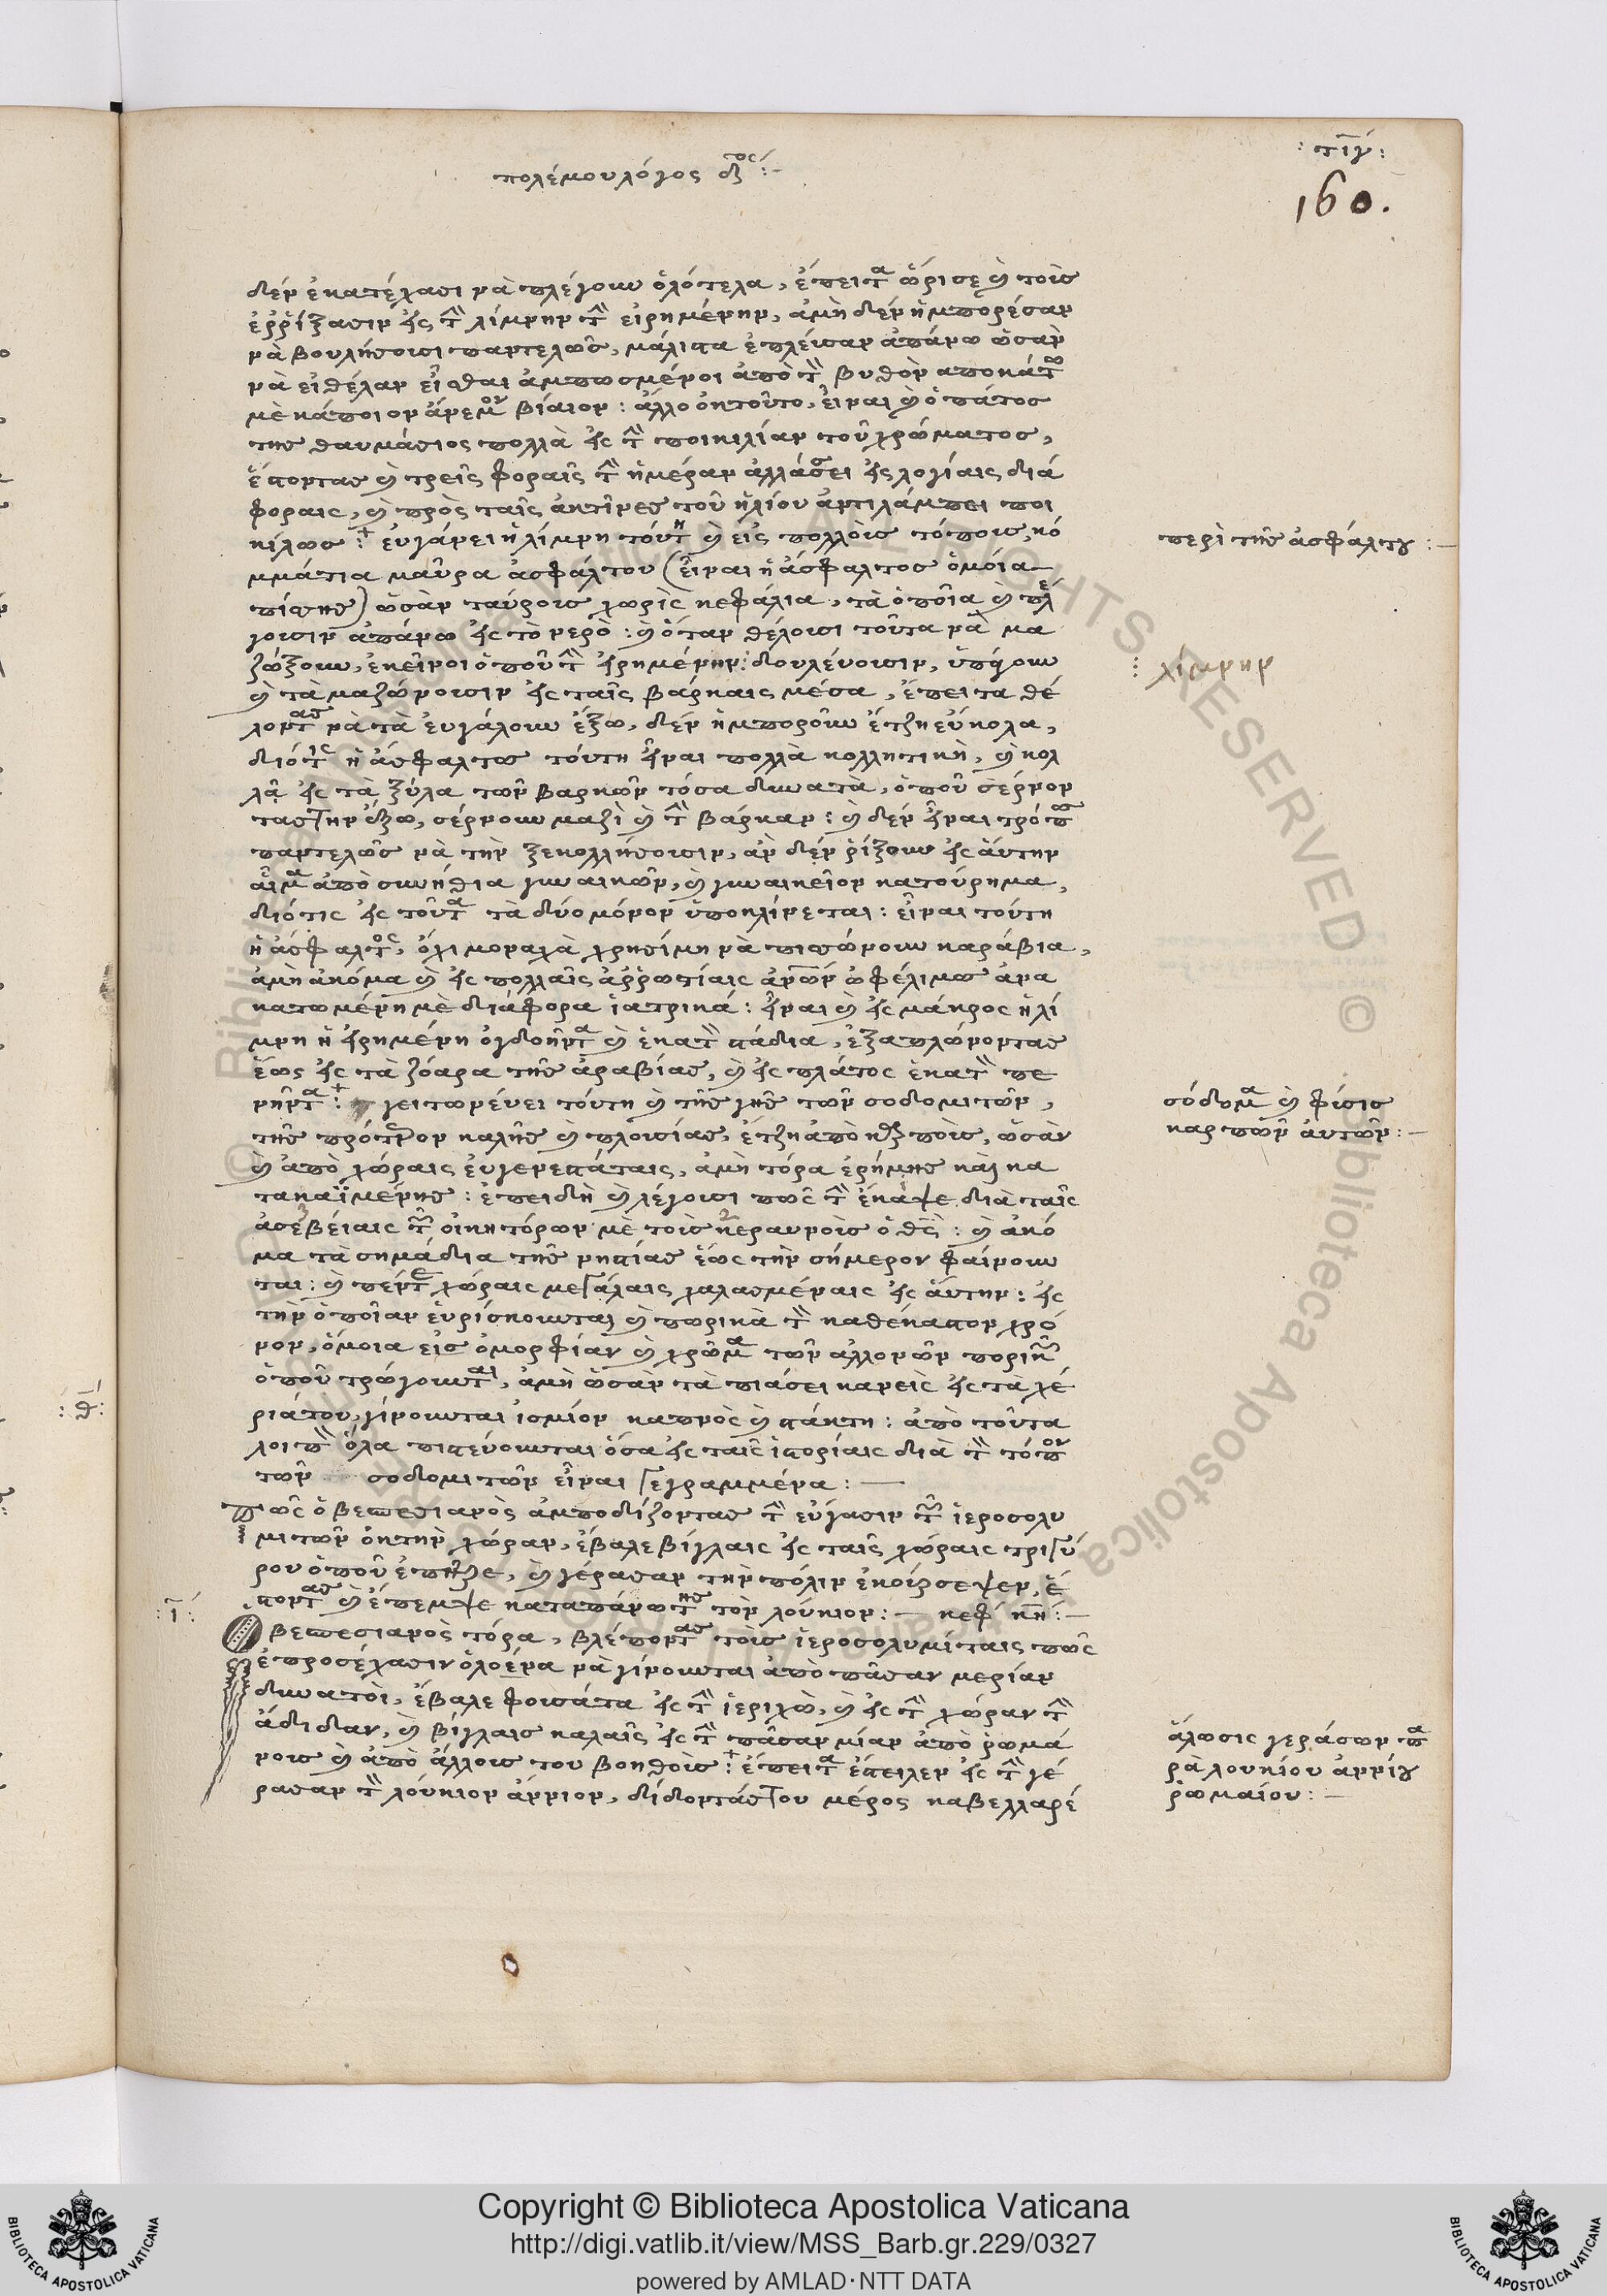 : τιγ :
160.
πολέμου λόγος δ<sup>ος</sup> :-
δὲν ἐκατέχασι νὰ πλέγουν ὁλότελα, ἔπειτα ὥρισε καὶ τοὺς
ἐῤῥίξασιν εἰς τὴν λίμνην τὴν εἰρημένην, ἀμὴ δὲν ἠμπορέσαν
νὰ βουλήσουσι παντελῶς, μάλιστα ἐπλεύσαν ἀπάνω ὡσὰν
νὰ εἰθέλαν εἶσθαι ἀμπωσμένοι ἀπὸ τὸν βυθὸν αποκάτω
μὲ κάποιον ἄνεμον βίαιον : ἄλλο ἐκτοῦτο, εἶναι καὶ ὁ πάτος
της θαυμάσιος πολλὰ εἰς τὴν ποικιλίαν τοῦ χρώματος,
ἔστοντας καὶ τρεῖς φοραῖς τὴν ἡμέραν ἀλλάσσει εἰς λογίαις διά
φοραις, καὶ πρὸς ταῖς ἀκτῖνες τοῦ ἡλίου ἀντιλάμπει ποι
κίλως :+ ἐυγάνει ἡ λίμνη τούτη καὶ εἰς πολλοὺς τόπους, κό
μμάτια μαῦρα ἀσφάλτου (εἶναι ἡ ἀσφαλτος ὁμοία
πίσσης) ὡσὰν ταύρους χωρὶς κεφάλια, τὰ ὁποῖα καὶ πλέ
γουσιν απάνω εἰς τὸ νερὸ : καὶ ὅταν θέλουσι τοῦτα νὰ μα
ζώξουν, ἐκεῖνοι ὁποῦ τὴν εἰρημένην : δουλέυουσιν, ὑπάγουν
καὶ τὰ μαζώνουσιν εἰς ταῖς βάρκαις μέσα, ἔπειτα θέ
λοντας νὰ τὰ ἐυγάλουν ἔξω, δὲν ἠμποροῦν ἔτζη εὔκολα,
διότις ἡ ἀσφαλτος τούτη εἶναι πολλὰ κολλητικὴ, καὶ κολ
λᾷ εἰς τὰ ξύλα τῶν βαρκῶν τόσα δυνατὰ, ὁποῦ σέρνον
τας την ἔξω, σέρνουν μαζὶ καὶ τὴν βάρκαν : καὶ δὲν εἶναι τρόπος
παντελῶς νὰ τὴν ξεκολλήσουσιν, ἂν δὲν ῥίξουν εἰς ἀυτην
αἷμα ἀπὸ συνήθια γυναικῶν, καὶ γυναικεῖον κατούρημα,
διότις εἰς τοῦτα τὰ δύο μόνον ὑποκλίνεται : εἶναι τούτη
ἡ ἀσφαλτος, ὄχι μοναχὰ χρησίμη νὰ πισσώνουν καράβια,
ἀμὴ ἀκόμα καὶ εἰς πολλαῖς ἀῤῥωστίαις ἀνθρώπων ὠφέλιμος ἀνα
κατωμένη μὲ διάφορα ἰατρικά : εἶναι καὶ εἰς μάκρος ἡ λί
μνη ἡ εἰρημένη ὀγδοῆντα καὶ ἑκατὸν στάδια, ἐξαπλώνοντας
ἕως εἰς τὰ ζόαρα τῆς ἀραβίας, καὶ εἰς πλάτος ἑκατὸν πε
νῆντα :+ γειτωνέυει τούτη καὶ τῆς γῆς τῶν σοδομιτῶν,
τῆς πρότερον καλῆς καὶ πλουσίας, ἔτζη ἀπὸ καρποὺς, ὡσὰν
καὶ ἀπὸ χώραις ἐυγενεστάταις, ἀμὴ τόρα ἐρήμης καὶ κα
τακαϊμένης : ἐπειδὴ καὶ λέγουσι πῶς τὴν ἔκαψε διὰ ταῖς
ἀσεβέιαις τῶν οἰκητόρων μὲ τοὺς κεραυνοὺς ὁ θεὸς : καὶ ἀκό
μα τὰ σημάδια τῆς νηστίας ἕως τὴν σήμερον φαίνουν
ται : καὶ πέντε χώραις μεγάλαις χαλασμέναις εἰς ἀυτην : εἰς
τὴν ὁποῖαν ἑυρίσκουνται καὶ πωρικὰ τὸν καθέκαστον χρό
νον, ὅμοια εἰς ὀμορφίαν καὶ χρῶμα τῶν ἀλλονῶν πορικῶν
ὁποῦ τρώγουνται, ἀμὴ ὡσὰν τὰ πιάσει κανεὶς εἰς τὰ χέ
ρια του, γίνουνται ἰσμίον καπνὸς καὶ στάκτη : ἀπὸ τοῦτα
λοιπὸν ὅλα πιστέυουνται ὅσα εἰς ταῖς ἱστορίαις διὰ τὸν τόπον
τῶν σοδομιτῶν εἶναι γεγραμμένα :—
Πῶς ὁ βεσπεσιανὸς ἀμποδίζοντας τὴν εὔγασιν τῶν ἱεροσολυ
μιτῶν ἐκ τὴν χώραν, ἔβαλε βίγλαις εἰς ταῖς χώραις τριγύ
ρου ὁποῦ ἐπῆρε, καὶ γέρασαν τὴν πόλιν ἐκούρσεψεν, ἔ
στοντας καὶ ἔπεμψε καταπάνω της τὸν λούκιον :— κεφ κη :—
Ὁ βεσπεσιανὸς τόρα, βλέποντας τοὺς ἱεροσολυμίταις πῶς
ἐπροσέχασιν ὁλοένα νὰ γίνουνται ἀπὸ πᾶσαν μερίαν
δυνατοὶ, ἔβαλε φουσάτα εἰς τὴν ἱεριχὼ, καὶ εἰς τὴν χώραν τὴν
ἄδιδαν, καὶ βίγλαις καλαῖς εἰς τὴν πᾶσαν μίαν ἀπὸ ῥωμά
νους καὶ ἀπὸ ἄλλους του βοηθοὺς :+ ἔπειτα ἔστειλεν εἰς τὴν γέ
ρασαν τὸν λούκιον ἄννιον, δίδοντάς του μέρος καβελλαρέ
περὶ τῆς ἀσφάλτου :—
⋮ λίμνην
σόδομα καὶ φύσις
καρπῶν ἀυτῶν :—
ἅλωσις γεράσων πα
ρὰ λουκίου ἀννίου
ῥωμαίου :—
: θ :
: ι :
Copyright © Biblioteca Apostolica Vaticana
http://digi.vatlib.it/view/MSS_Barb.gr.229/0327
powered by AMLAD·NTT DATA
BIBLIOTECA APOSTOLICA VATICANA
BIBLIOTECA APOSTOLICA VATICANA